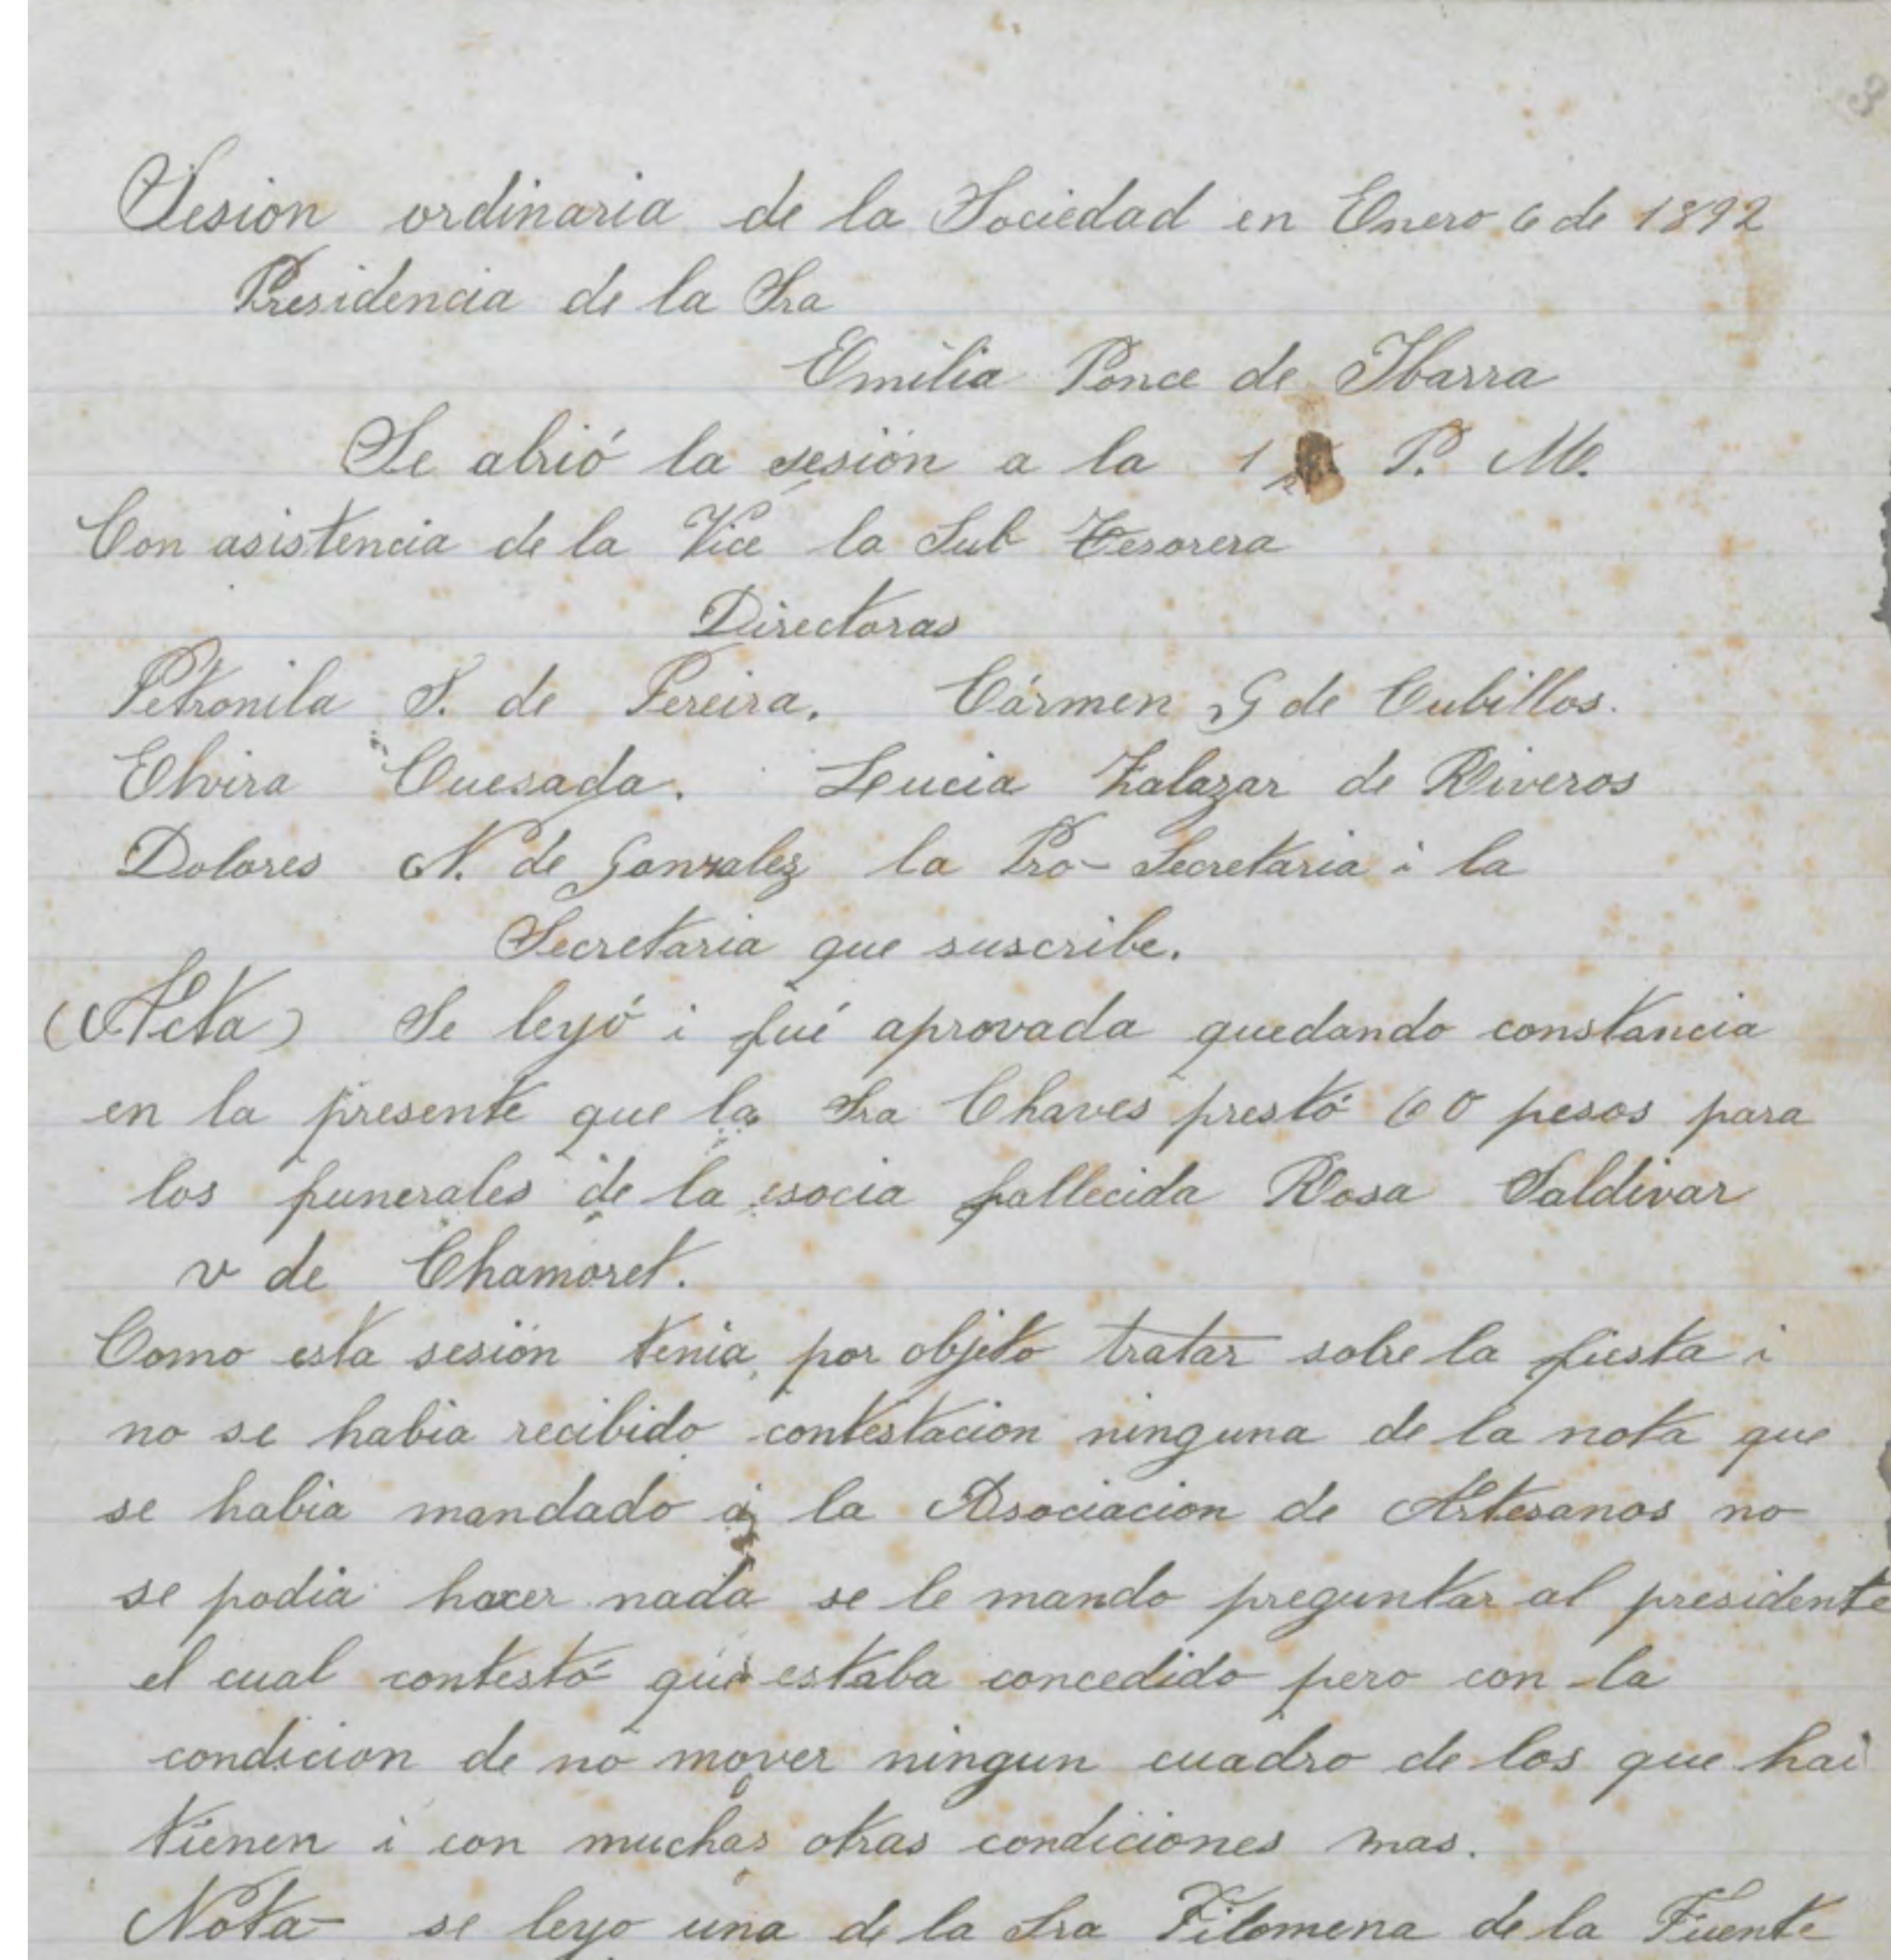 3
Sesion ordinaria de la Sociedad en Enero 6 de 1892
Presidencia de la Sra
Emilia Ponce de Ibarra
Se abrió la sesión a la 1 P. M.
Con asistencia de la Vice la Sub Tesorera
Directoras
Petronila S. de Pereira. Cármen G de Cubillos.
Elvira Quesada. Lucia Zalazar de Riveros
Dolores N. de Gonzalez la Pro-Secretaria i la
Secretaria que suscribe.
(Acta) Se leyó i fué aprovada quedando constancia
en la presente que la Sra Chaves prestó 60 pesos para
los funerales de la socia fallecida Rosa Saldivar
v de Chamoret.
Como esta sesión tenia por objeto tratar sobre la fiesta i
no se habia recibido contestacion ninguna de la nota que
se habia mandado a la Asociacion de Artesanos no
se podia hacer nada se le mando preguntar al presidente
el cual contestó que estaba concedido pero con la
condicion de no mover ningun cuadro de los que hai
tienen i con muchas otras condiciones mas.
Nota- se leyo una de la Sra Filomena de la Fuente